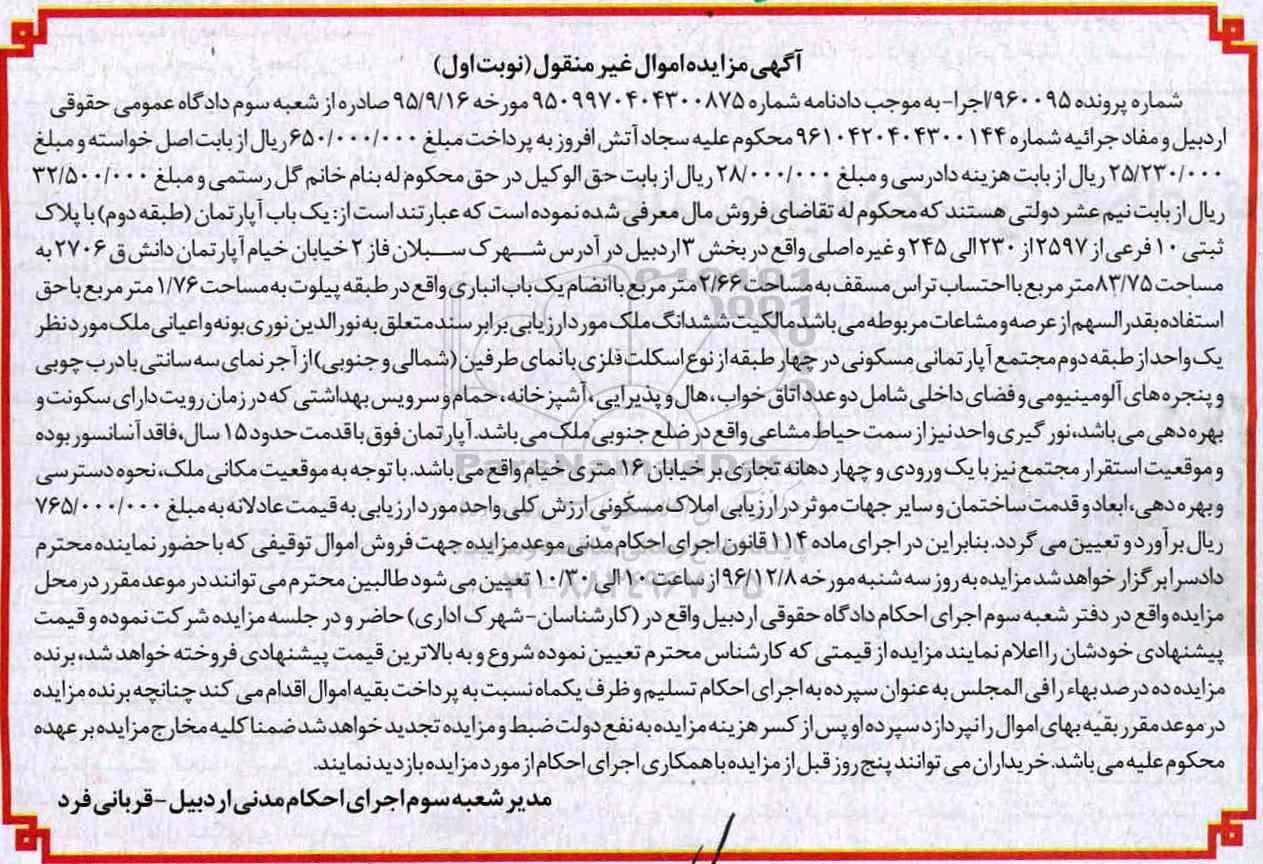 آگهی مزایده اموال غیر منقول (نوبت اول)
شماره پرونده ۹۶۰۰۹۵/اجرا- به موجب دادنامه شماره ۹۵۰۹۹۷۰۴۰۴۳۰۰۸۷۵ مورخه ۹۵/۹/۱۶ صادره از شعبه سوم دادگاه عمومی حقوقی
اردبیل و مفاد جرائیه شماره ۹۶۱۰۴۲۰۴۰۴۳۰۰۱۴۴ محکوم علیه سجاد آتش افروز به پرداخت مبلغ ۶۵۰/۰۰۰/۰۰۰ ریال از بابت اصل خواسته و مبلغ
۲۵/۲۳۰/۰۰۰ ریال از بابت هزینه دادرسی و مبلغ ۲۸/۰۰۰/۰۰۰ ریال از بابت حق الوکیل در حق محکوم له بنام خانم گل رستمی و مبلغ ۳۲/۵۰۰/۰۰۰
ریال از بابت نیم عشر دولتی هستند که محکوم له تقاضای فروش مال معرفی شده نموده است که عبارتند است از: یک باب آپارتمان (طبقه دوم) با پلاک
ثبتی ۱۰ فرعی از ۲۵۹۷ از ۲۳۰ الی ۲۴۵ و غیره اصلی واقع در بخش ۳ اردبیل در آدرس شهرک سبلان فاز ۲ خیابان خیام آپارتمان دانش ق ۲۷۰۶ به
مساحت ۸۳/۷۵ متر مربع با احتساب تراس مسقف به مساحت ۲/۶۶ متر مربع با انضام یک باب انباری واقع در طبقه پیلوت به مساحت ۱/۷۶ متر مربع با حق
استفاده بقدر السهم از عرصه و مشاعات مربوطه می باشد مالکیت ششدانگ ملک مورد ارزیابی برابر سند متعلق به نورالدین نوری بونه و اعیانی ملک مورد نظر
یک واحد از طبقه دوم مجتمع آپارتمانی مسکونی در چهار طبقه از نوع اسکلت فلزی با نمای طرفین (شمالی و جنوبی) از آجر نمای سه سانتی با درب چوبی
و پنجره های آلومینیومی و فضای داخلی شامل دو عدد اتاق خواب، هال و پذیرایی، آشپزخانه، حمام و سرویس بهداشتی که در زمان رویت دارای سکونت و
بهره دهی می باشد، نور گیری واحد نیز از سمت حیاط مشاعی واقع در ضلع جنوبی ملک می باشد. آپارتمان فوق با قدمت حدود ۱۵ سال، فاقد آسانسور بوده
و موقعیت استقرار مجتمع نیز با یک ورودی و چهار دهانه تجاری بر خیابان ۱۶ متری خیام واقع می باشد. با توجه به موقعیت مکانی ملک، نحوه دسترسی
و بهره دهی، ابعاد و قدمت ساختمان و سایر جهات موثر در ارزیابی املاک مسکونی ارزش کلی واحد مورد ارزیابی به قیمت عادلانه به مبلغ ۷۶۵/۰۰۰/۰۰۰
ریال برآورد و تعیین می گردد. بنابراین در اجرای ماده ۱۱۴ قانون اجرای احکام مدنی موعد مزایده جهت فروش اموال توقیفی که با حضور نماینده محترم
دادسرا برگزار خواهد شد مزایده به روز سه شنبه مورخه ۹۶/۱۲/۸ از ساعت ۱۰ الی ۱۰/۳۰ تعیین می شود طالبین محترم می توانند در موعد مقرر در محل
مزایده واقع در دفتر شعبه سوم اجرای احکام دادگاه حقوقی اردبیل واقع در (کارشناسان- شهرک اداری) حاضر و در جلسه مزایده شرکت نموده و قیمت
پیشنهادی خودشان را اعلام نمایند مزایده از قیمتی که کارشناس محترم تعیین نموده شروع و به بالاترین قیمت پیشنهادی فروخته خواهد شد، برنده
مزایده ده درصد بهاء را فی المجلس به عنوان سپرده به اجرای احکام تسلیم و ظرف یکماه نسبت به پرداخت بقیه اموال اقدام می کند چنانچه برنده مزایده
در موعد مقرر بقیه بهای اموال را نپردازد سپرده او پس از کسر هزینه مزایده به نفع دولت ضبط و مزایده تجدید خواهد شد ضمنا کلیه مخارج مزایده بر عهده
محکوم علیه می باشد. خریداران می توانند پنج روز قبل از مزایده با همکاری اجرای احکام از مورد مزایده بازدید نمایند.
مدیر شعبه سوم اجرای احکام مدنی اردبیل - قربانی فرد